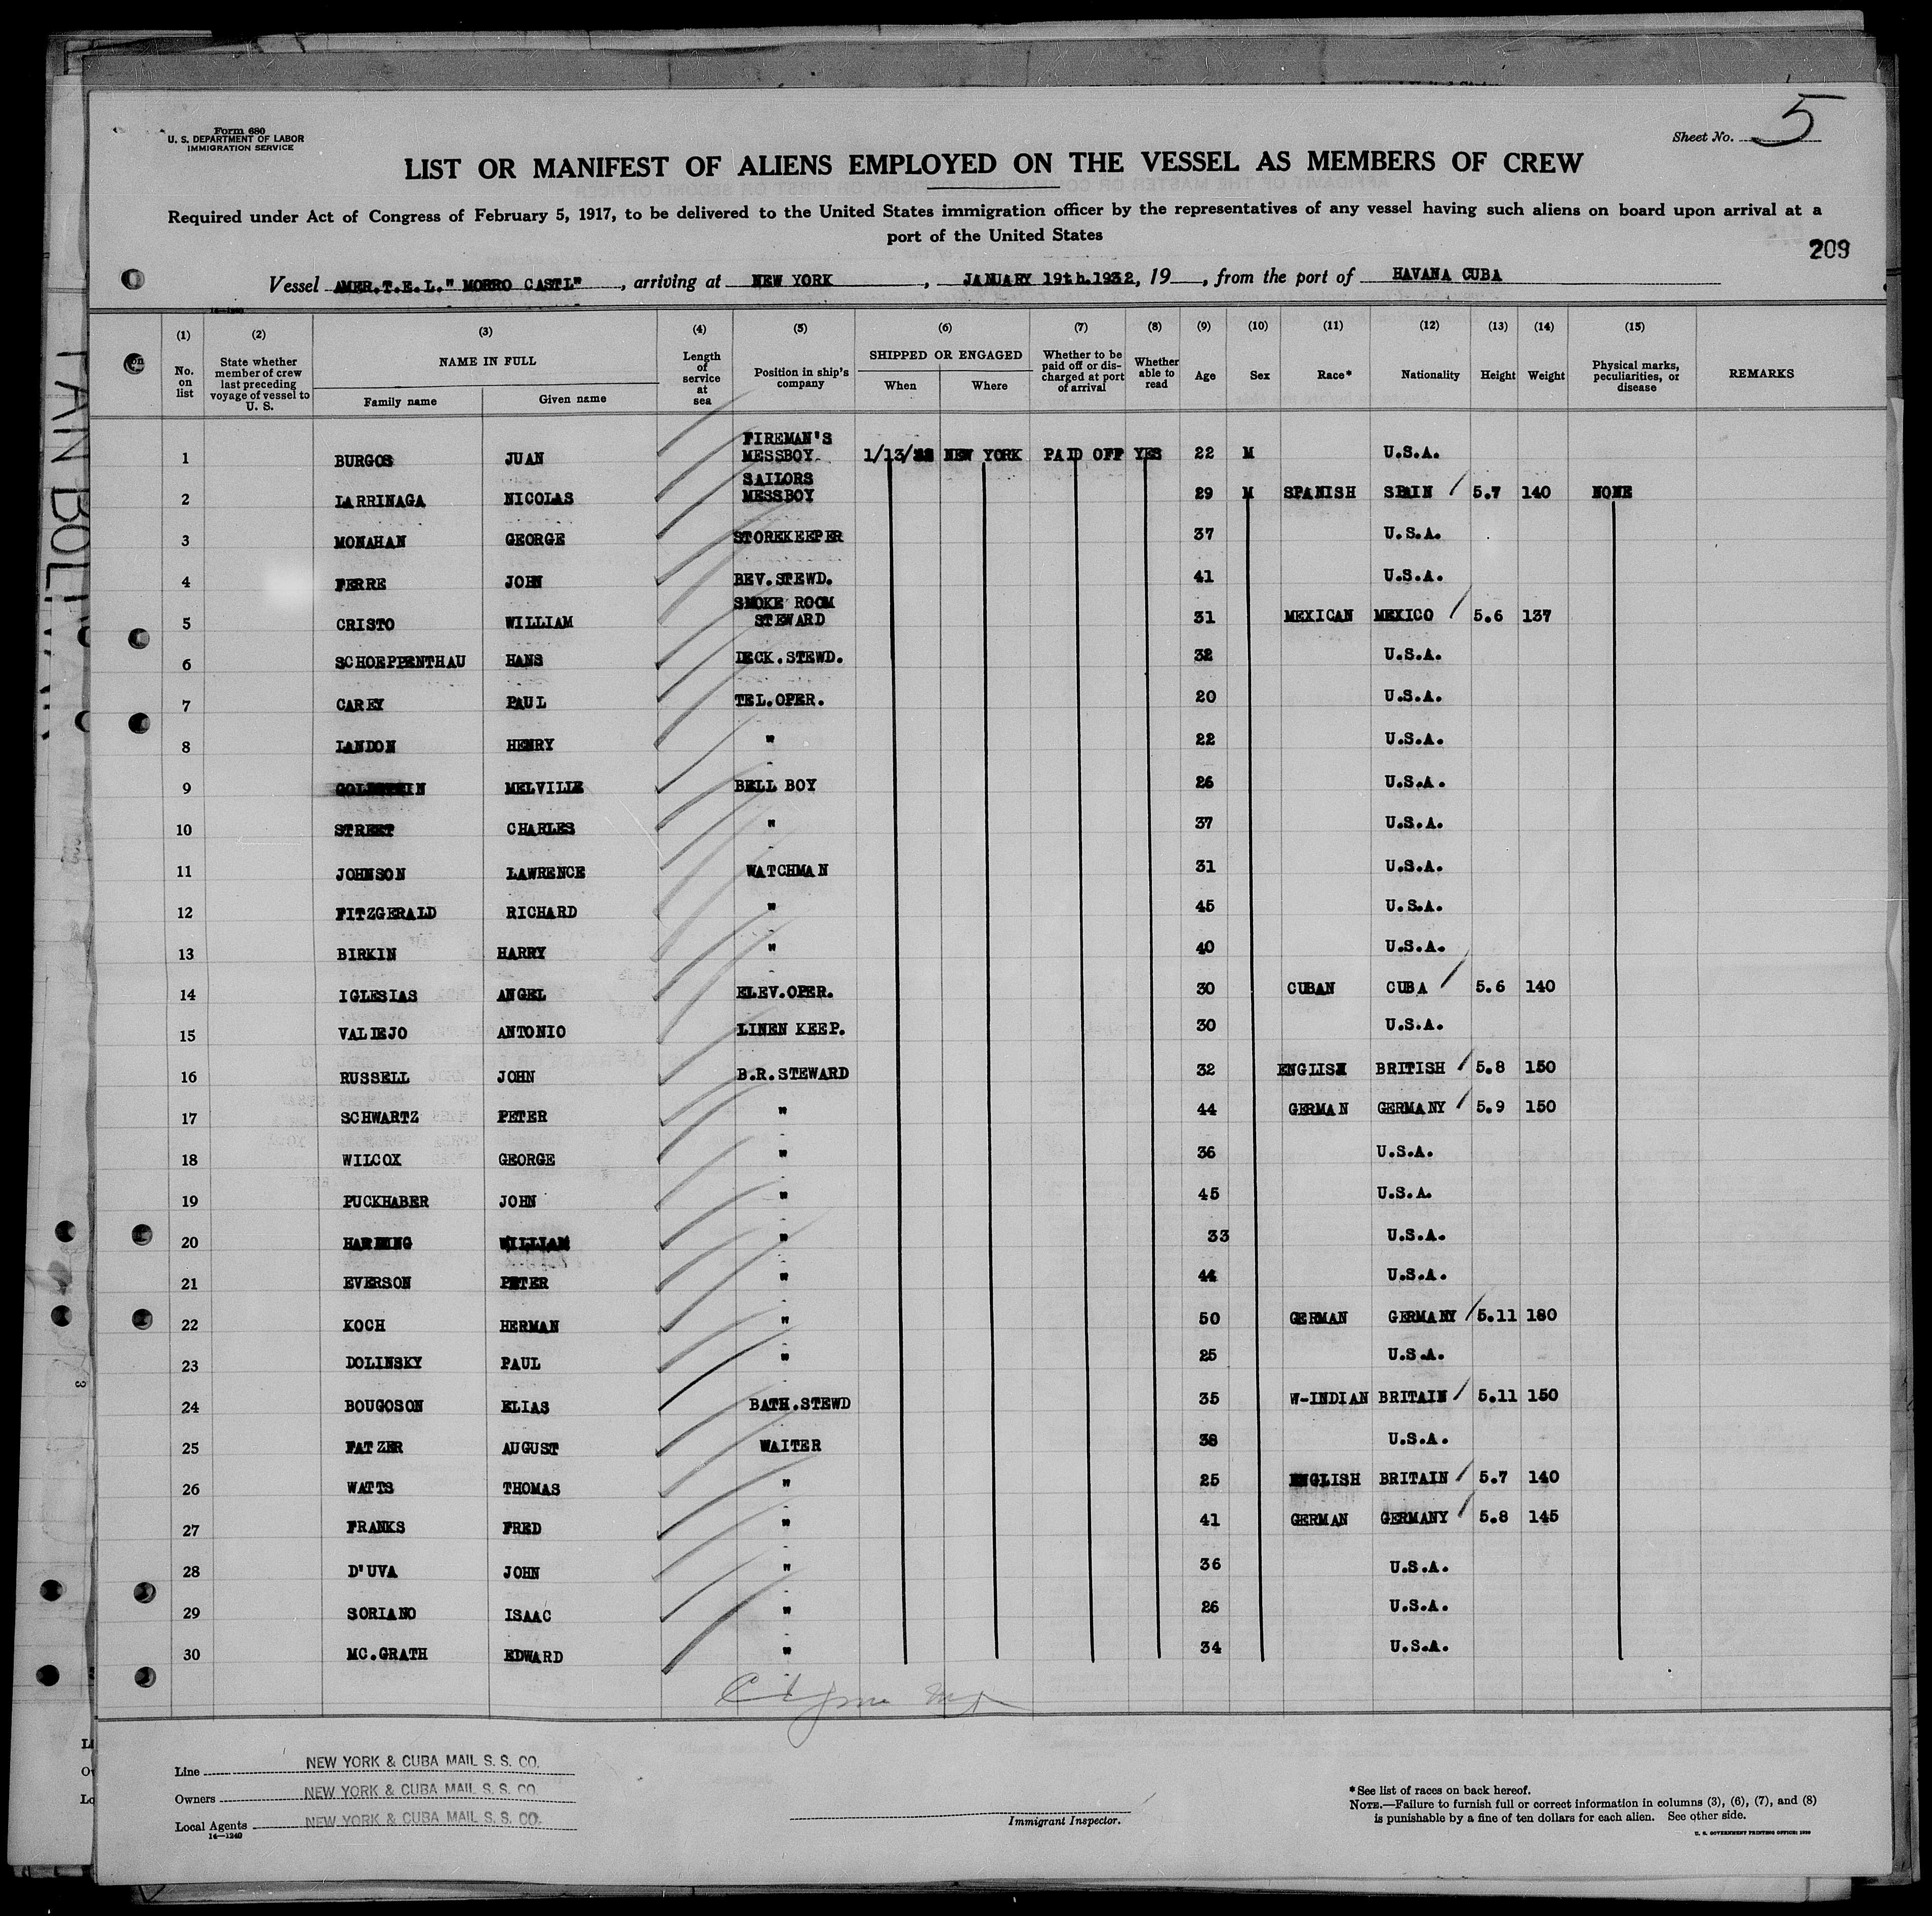 Form 680
U. S. DEPARTMENT OF LABOR
IMMIGRATION SERVICE
Sheet No. 5
LIST OR MANIFEST OF ALIENS EMPLOYED ON THE VESSEL AS MEMBERS OF CREW
Required under Act of Congress of February 5, 1917, to be delivered to the United States immigration officer by the representatives of any vessel having such aliens on board upon arrival at a
port of the United States
209
Vessel AMER.T.E.L." MORRO CASTL", arriving at NEW YORK, JANUARY 19th.1932, 19, from the port of HAVANA CUBA
(1) (2) (3) (4) (5) (6) (7) (8) (9) (10) (11) (12) (13) (14) (15)
No. on list State whether member of crew last preceding voyage of vessel to U. S. NAME IN FULL Family name Given name Length of service at sea Position in ship's company SHIPPED OR ENGAGED When Where Whether to be paid off or discharged at port of arrival Whether able to read Age Sex Race* Nationality Height Weight Physical marks, peculiarities, or disease REMARKS
1 BURGOS JUAN FIREMAN'S MESSBOY 1/13/ NEW YORK PAID OFF YES 22 M U.S.A.
2 LARRINAGA NICOLAS SAILORS MESSBOY 29 M SPANISH SPAIN 5.7 140 NONE
3 MONAHAN GEORGE STOREKEEPER 37 U.S.A.
4 FERRE JOHN BEV.STEWD. 41 U.S.A.
5 CRISTO WILLIAM SMOKE ROOM STEWARD 31 MEXICAN MEXICO 5.6 137
6 SCHOEPPENTHAU HANS DECK.STEWD. 32 U.S.A.
7 CAREY PAUL TEL.OPER. 20 U.S.A.
8 LANDON HENRY " 22 U.S.A.
9 GOLDSTEIN MELVILLE BELL BOY 26 U.S.A.
10 STREET CHARLES " 37 U.S.A.
11 JOHNSON LAWRENCE WATCHMAN 31 U.S.A.
12 FITZGERALD RICHARD " 45 U.S.A.
13 BIRKIN HARRY " 40 U.S.A.
14 IGLESIAS ANGEL ELEV.OPER. 30 CUBAN CUBA 5.6 140
15 VALLEJO ANTONIO LINEN KEEP. 30 U.S.A.
16 RUSSELL JOHN B.R.STEWARD 32 ENGLISH BRITISH 5.8 150
17 SCHWARTZ PETER " 44 GERMAN GERMANY 5.9 150
18 WILCOX GEORGE " 36 U.S.A.
19 PUCKHABER JOHN " 45 U.S.A.
20 WILLIAM " 33 U.S.A.
21 EVERSON PETER " 44 U.S.A.
22 KOCH HERMAN " 50 GERMAN GERMANY 5.11 180
23 DOLINSKY PAUL " 25 U.S.A.
24 BOUGOSON ELIAS BATH.STEWD 35 W-INDIAN BRITAIN 5.11 150
25 FATZER AUGUST WAITER 38 U.S.A.
26 WATTS THOMAS " 25 ENGLISH BRITAIN 5.7 140
27 FRANKS FRED " 41 GERMAN GERMANY 5.8 145
28 D'UVA JOHN " 36 U.S.A.
29 SORIANO ISAAC " 26 U.S.A.
30 MC.GRATH EDWARD " 34 U.S.A.
Line NEW YORK & CUBA MAIL S. S. CO.
Owners NEW YORK & CUBA MAIL S. S. CO.
Local Agents NEW YORK & CUBA MAIL S. S. CO.
14—1240
Immigrant Inspector.
*See list of races on back hereof.
NOTE.—Failure to furnish full or correct information in columns (3), (6), (7), and (8)
is punishable by a fine of ten dollars for each alien. See other side.